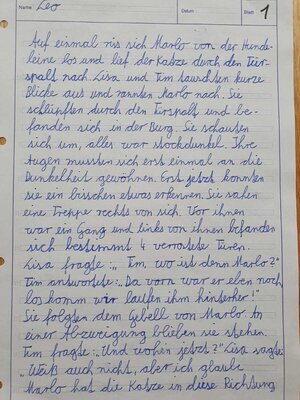 Name Leo
Datum
Blatt 1
Auf einmal ris sich Marlo von der Hunde-
leine los und lief der Katze durch den Tür-
spalt nach. Lisa und Tim tauschten kurze
Blicke aus und rannten Marlo nach. Sie
schlüpften durch den Türspalt und be-
fanden sich in der Burg. Sie schauten
sich um, alles war stockdunkel. Ihre
Augen mussten sich erst einmal an die
Dunkelheit gewöhnen. Erst jetzt konnten
sie ein bisschen etwas erkennen. Sie sahen
eine Treppe rechts von sich. Vor ihnen
war ein Gang und links von ihnen befanden
sich bestimmt 4 verrostete Türen.
Lisa fragte: „Tim, wo ist denn Marlo?"
Tim antwortete: „Da vorn war er eben noch,
los komm wir laufen ihm hinterher!"
Sie folgten dem Gebell von Marlo. An
einer Abzweigung blieben sie stehen.
Tim fragte: „Und wohin jetzt?" Lisa sagte:
„Weiß auch nicht, aber ich glaube
Marlo hat die Katze in diese Richtung